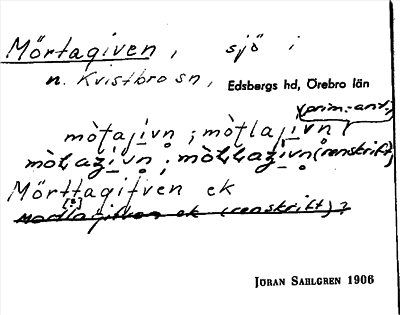 Mörtagiven, sjö i
n. Kvistbro sn, Edsbergs hd, Örebro län
(prim.-ant.)
mòtajivn; mòtlajivn
mòtlagivn; mòtlagivn (renskrift)
Mörttagifven ek
[?]
ek (renskrift)?
JÖRAN SAHLGREN 1906